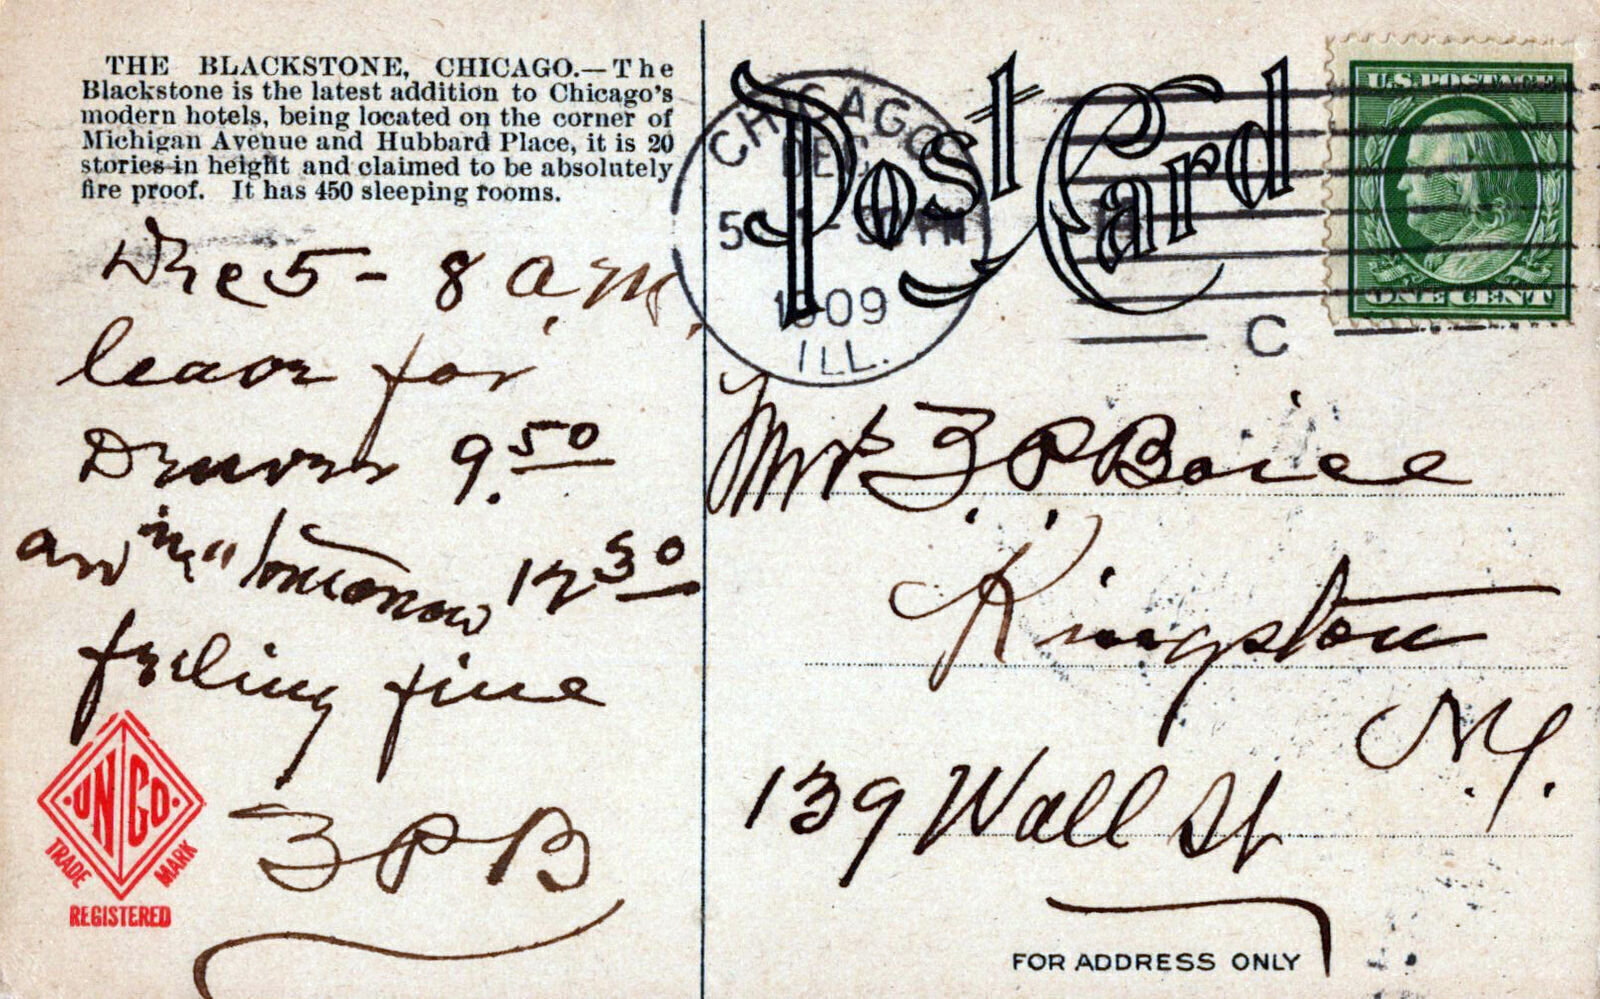 THE BLACKSTONE, CHICAGO.—The
Blackstone is the latest addition to Chicago's
modern hotels, being located on the corner of
Michigan Avenue and Hubbard Place, it is 20
stories in height and claimed to be absolutely
fire proof. It has 450 sleeping rooms.
Dec 5 - 8 a.m.
leave for
Denver 9.50
arr in" tomorrow 12 30
feeling fine
Z P B
UNCO
TRADE MARK
REGISTERED
Post Card
CHICAGO
DEC
5 30 PM
1909
ILL.
C
U.S. POSTAGE
ONE CENT
Mrs Z. P. Boice
Kingston
N.Y.
139 Wall St
FOR ADDRESS ONLY